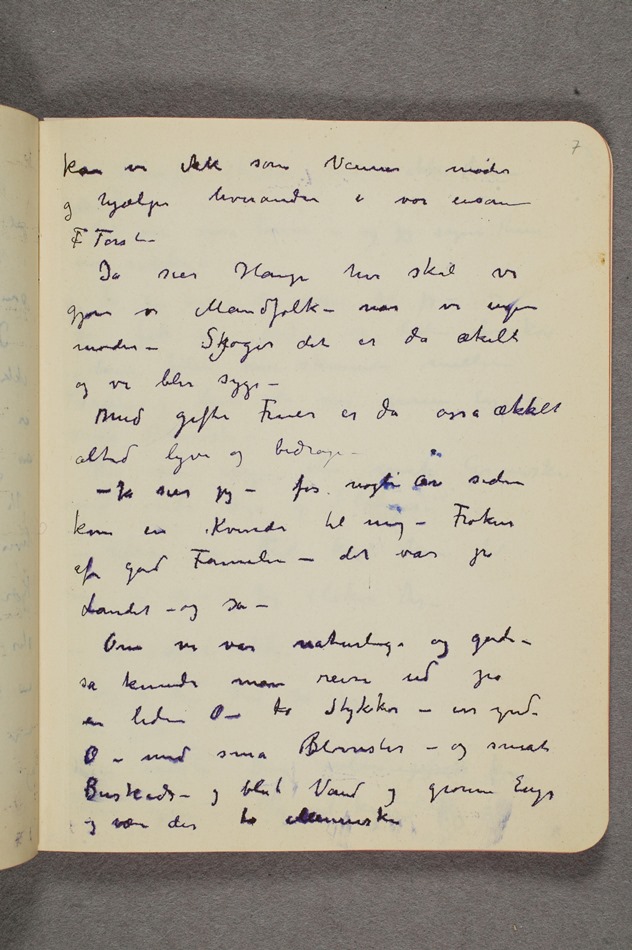 7
kan vi ikk som Venner møder
og hjælpe hverander i vor ensom
F Torst–
Ja sier Hauge hva skal vi
gjøre vi Mandfolk – nar vi ingen
møder – Skjøger det er da ækelt
og vi blir syge –
Med gifte Fruer er da ogsa ækkelt
altid lyve og bedrage –
– Ja sier jeg – for nogle ar siden
kom en Kvinde til mig – Frøken
af god Familie – det var pa
Landet – og sa –
Om vi var naturlige og gode –
sa kunde man reise ud pa
en liden Ø – to Stykker – en grøn
Ø – med sma Blomster – og smat
Buskads – og blat Vand og grønne Enge
og være der to Mennesker